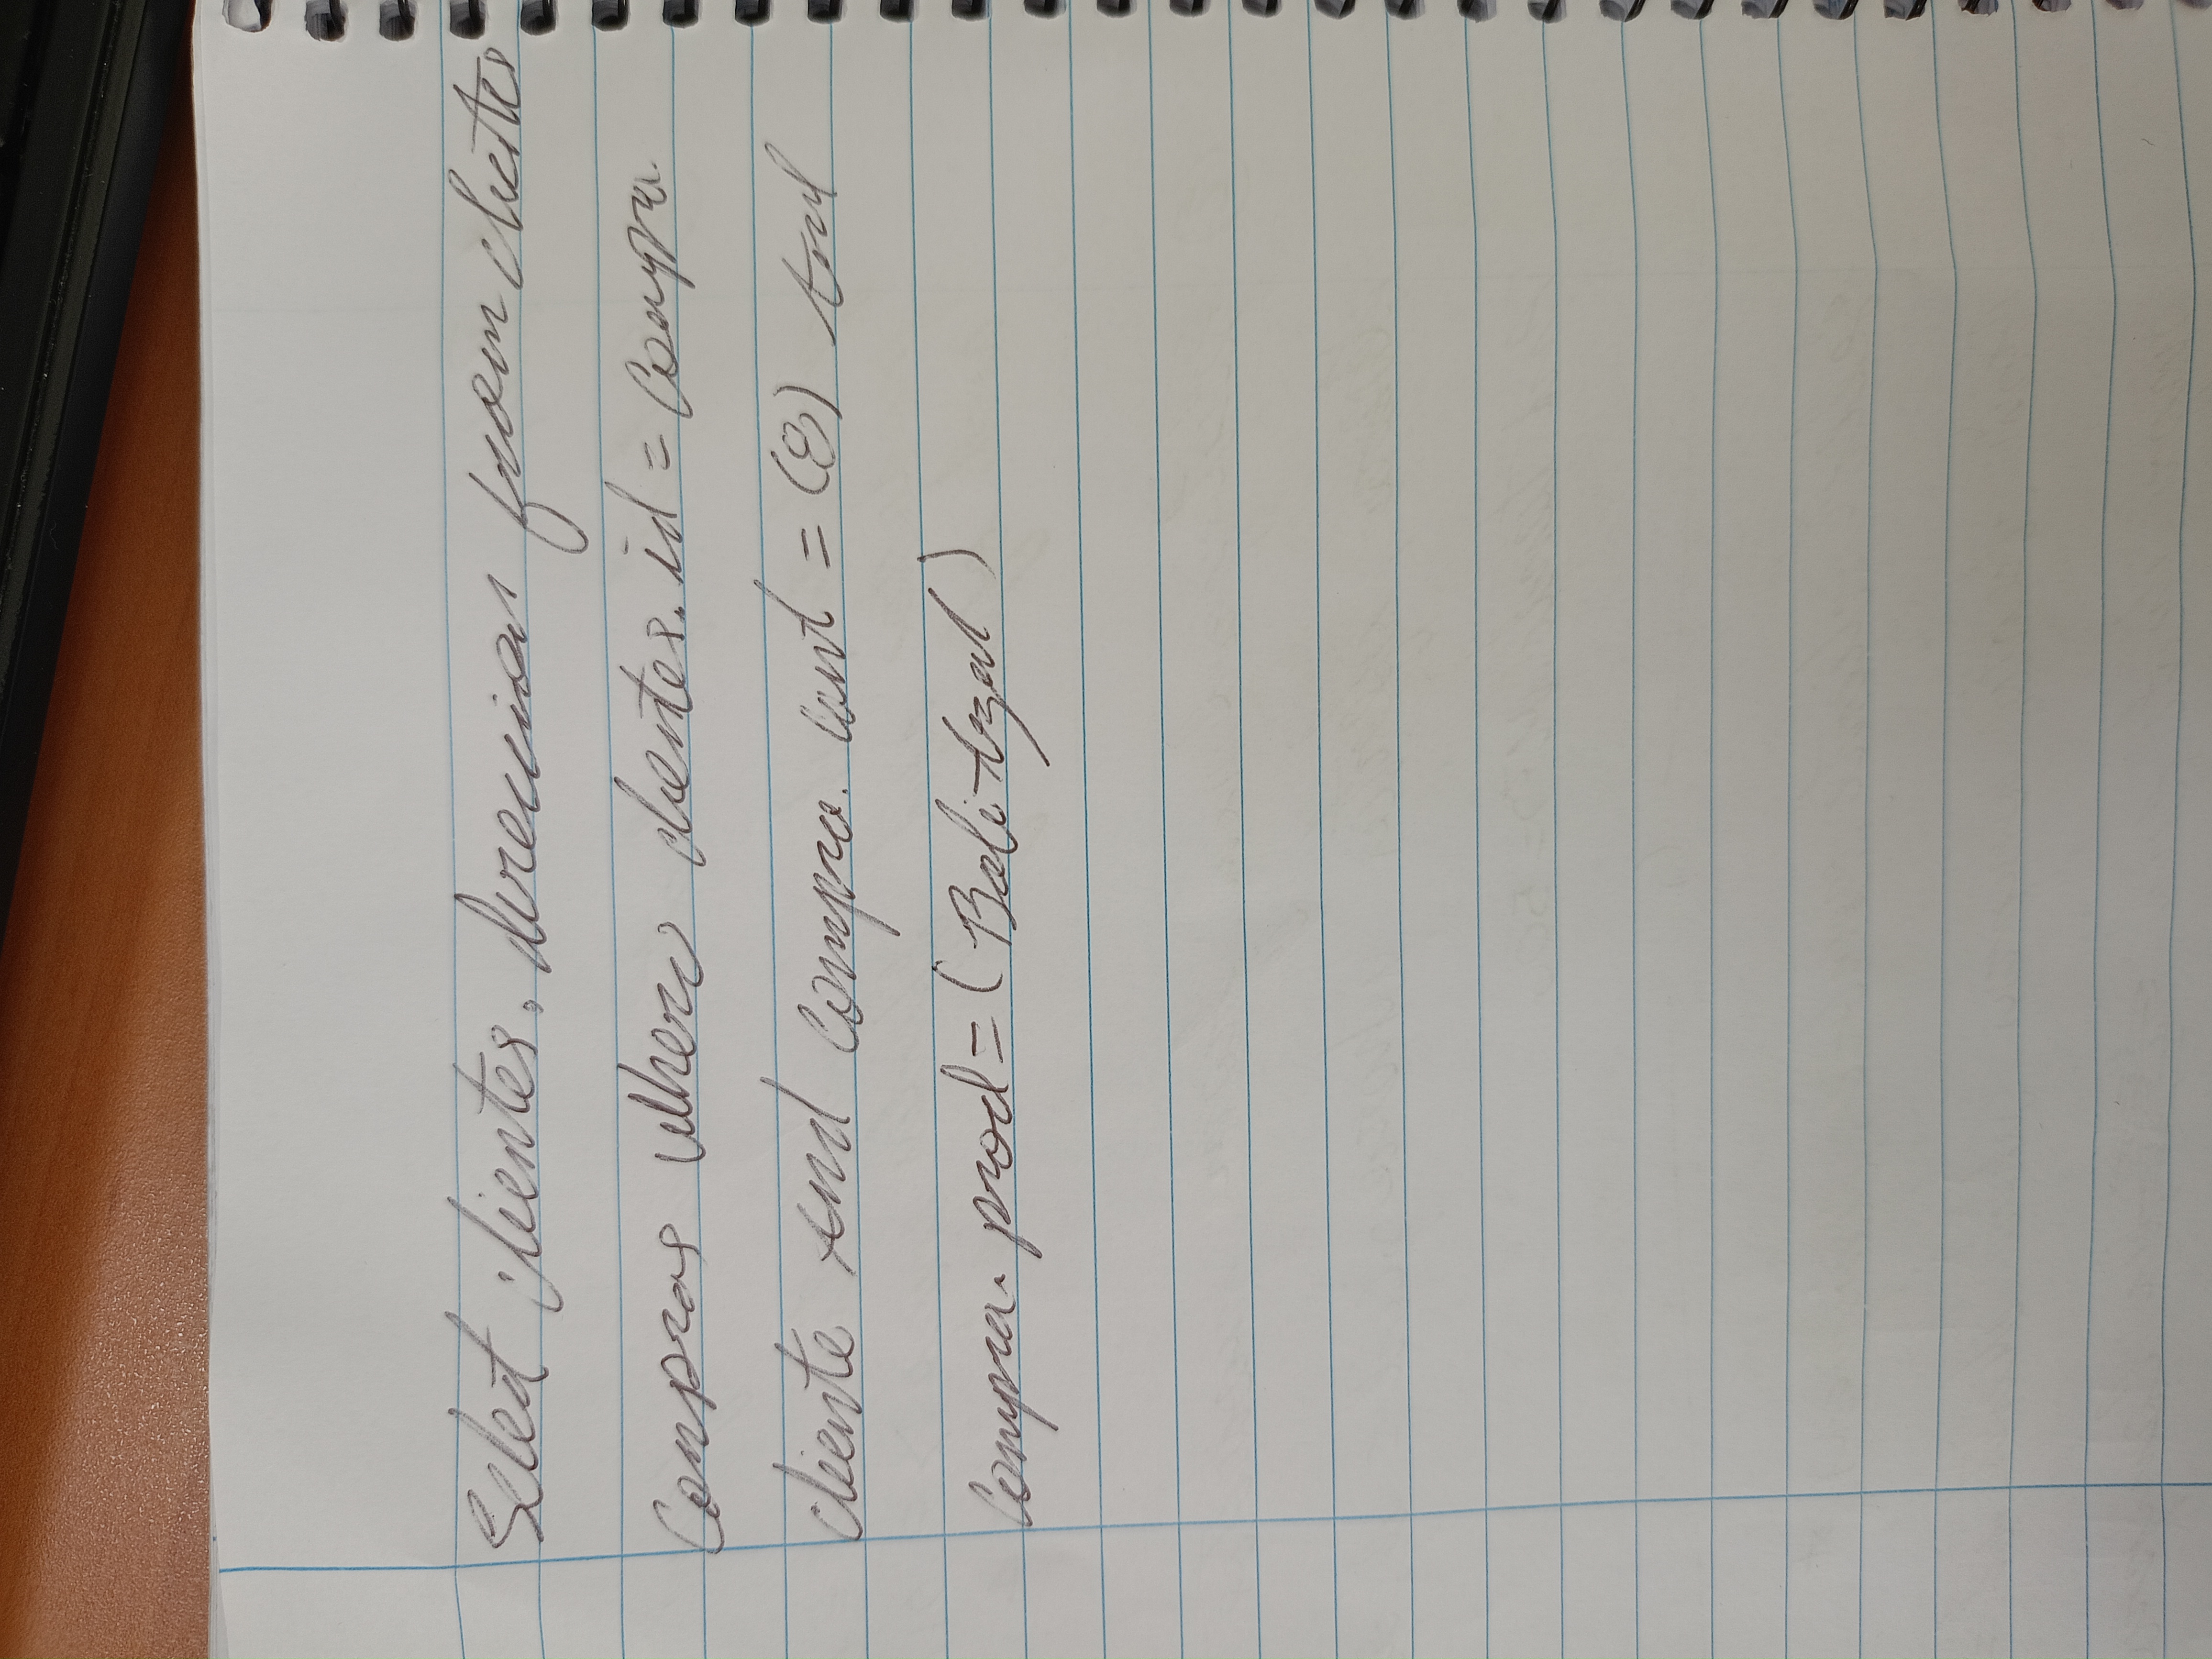 Select clientes. direccion from clientes
Compras where clientes. id = Compra.
cliente And Compra. cant = (8) And
Compra. prod = (Balitzal)